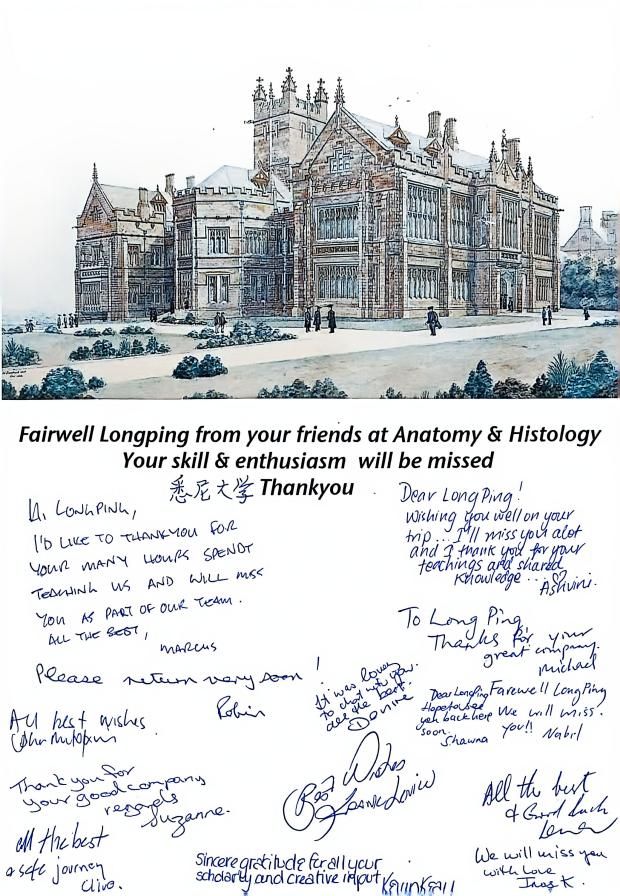 Fairwell Longping from your friends at Anatomy & Histology
Your skill & enthusiasm will be missed
悉尼大学 Thankyou
Hi LongPing,
I'd like to thankyou for
your many hours spendt
teaching us and will miss
you as part of our team.
All the best,
Marcus
Dear LongPing!
Wishing you well on your
trip... I'll miss you alot
and I thank you for your
teachings and shared
knowledge...
Ashvini.
To Long Ping
Thanks for your
great company.
Michael
Please return very soon!
Robin
It was lovely
to chat with you.
all the best.
Dear LongPing
Hope to see
you back here
soon.
Shawna
Farewell LongPing
We will miss
you!!
Nabil
All best wishes
Best Wishes
Thank you for
your good company
regards
Suzanne.
All the best
& Good luck
all the best
a safe journey
Clive.
Sincere gratitude for all your
scholarly and creative input
We will miss you
with Love